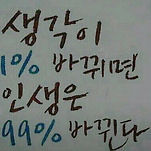 생각이
1% 바뀌면
인생은
99% 바뀐다